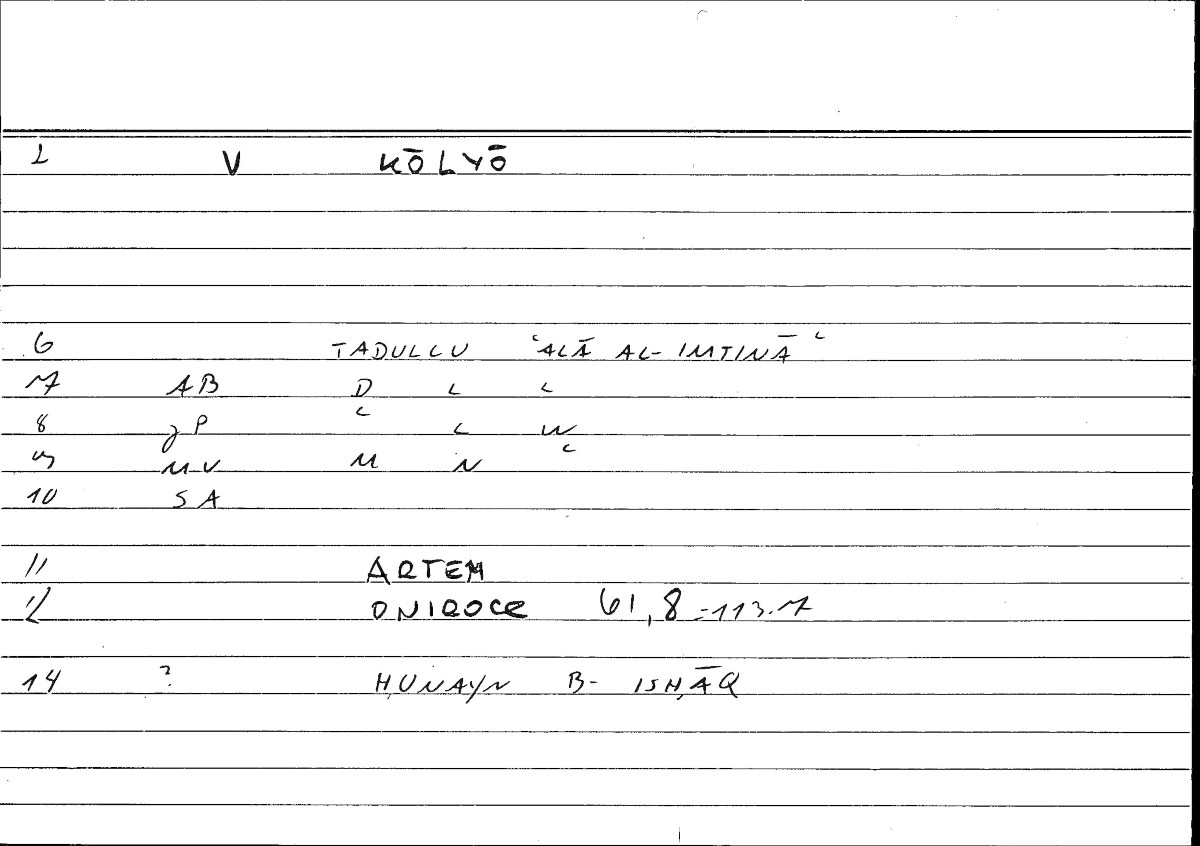 1 V KŌLYŌ
6 TADULLU ʿALĀ AL-IMTINĀʿ
7 AB D L L
8 JP ʿ L W
9 MV M N ʿ
10 SA
11 ARTEM
12 ONIROCR 61,8 = 113.7
14 ? ḤUNAYN B- ISḤĀQ